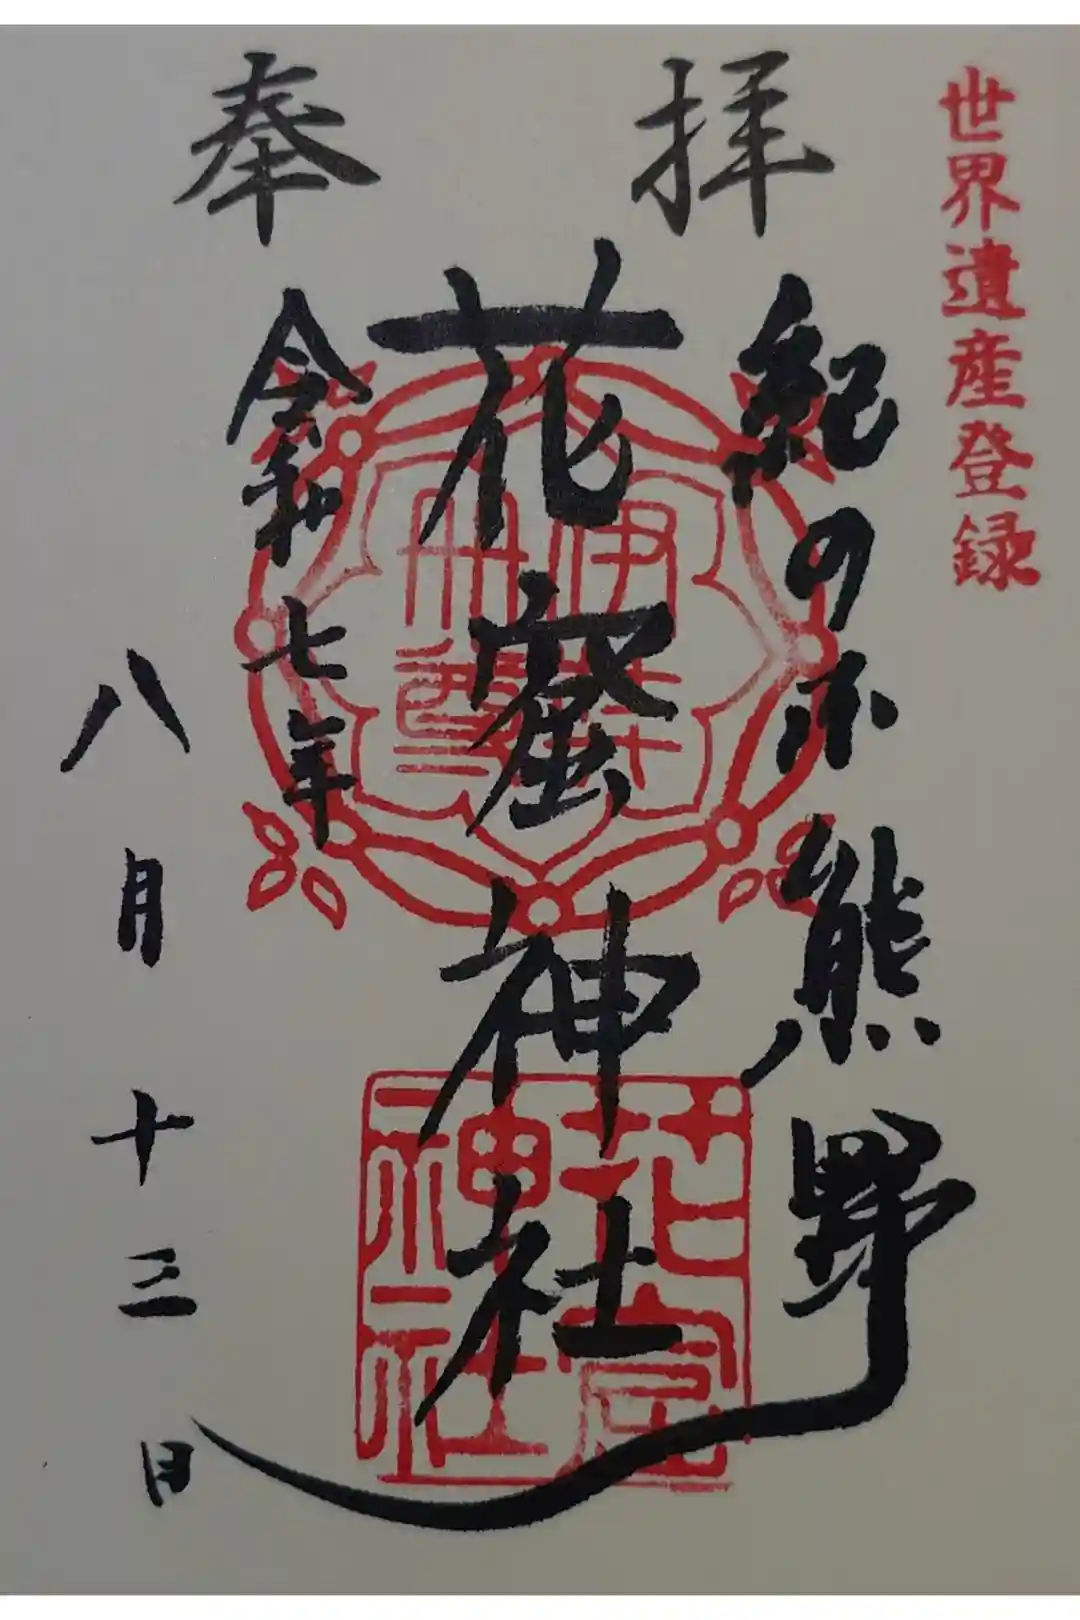 奉拝
世界遺産登録
紀の 熊野
花窟神社
令和七年
八月十三日
伊弉
冊尊
花窟
神社